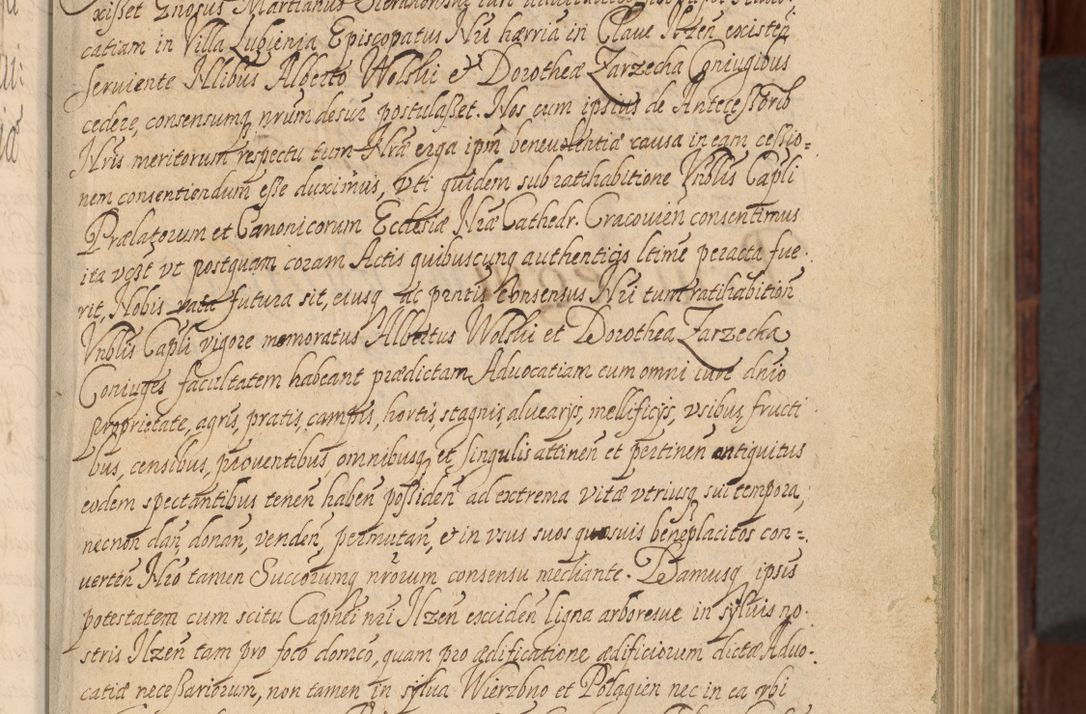 catiam in Villa Lugienia Episcopatus Nri hærria in Clave Ilzen existen
serviente Nllibus Alberto Wolski et Dorotheæ Zarzecka Coniugibus
cedere, consensumq nrum desuper postulasset. Nos cum ipsius de Antecessorib
Nris meritorum respectu tum Nræ erga ipm benevolentiæ causa in eam cessio=
nem consentiendum esse duximus, Vti quidem sub ratihabitione Vnblis Capli
Prælatorum et Canonicorum Ecclesiæ Nræ Cathedr. Cracovien consentimus
ita vt postquam coram Actis quibuscunq authenticis ltime peracta fue
rit, Nobis rata futura sit, eiusq ac pntis Consensus Nri tum ratihabition
Vnblis Capli vigore memoratus Albertus Wolski et Dorothea Zarzecka
Coniuges facultatem habeant prædictam Advocatiam cum omni iure dnio
proprietate, agris, pratis, campis, hortis, stagnis, alvearijs, mellificijs, vsibus, fructi
bus, censibus, proventibus omnibusq et singulis attinen et pertinen antiquitus
eodem spectantibus tenen haben possiden ad extrema vitæ vtriusq sui tempora,
necnon dan, donan, venden, permutan, et in vsus suos quosuis beneplacitos con=
verten Nro tamen Succorumq nrorum consensu mediante. Damusq ipsis
potestatem cum scitu Caphei nri Ilzen exciden ligna arboresue in syluis no
stris Ilzen tam pro foco domco, quam pro ædificatione ædificiorum dictæ Advo
catiæ necessariorum, non tamen in sylua Wierzbno et Polagien nec in ea vbi